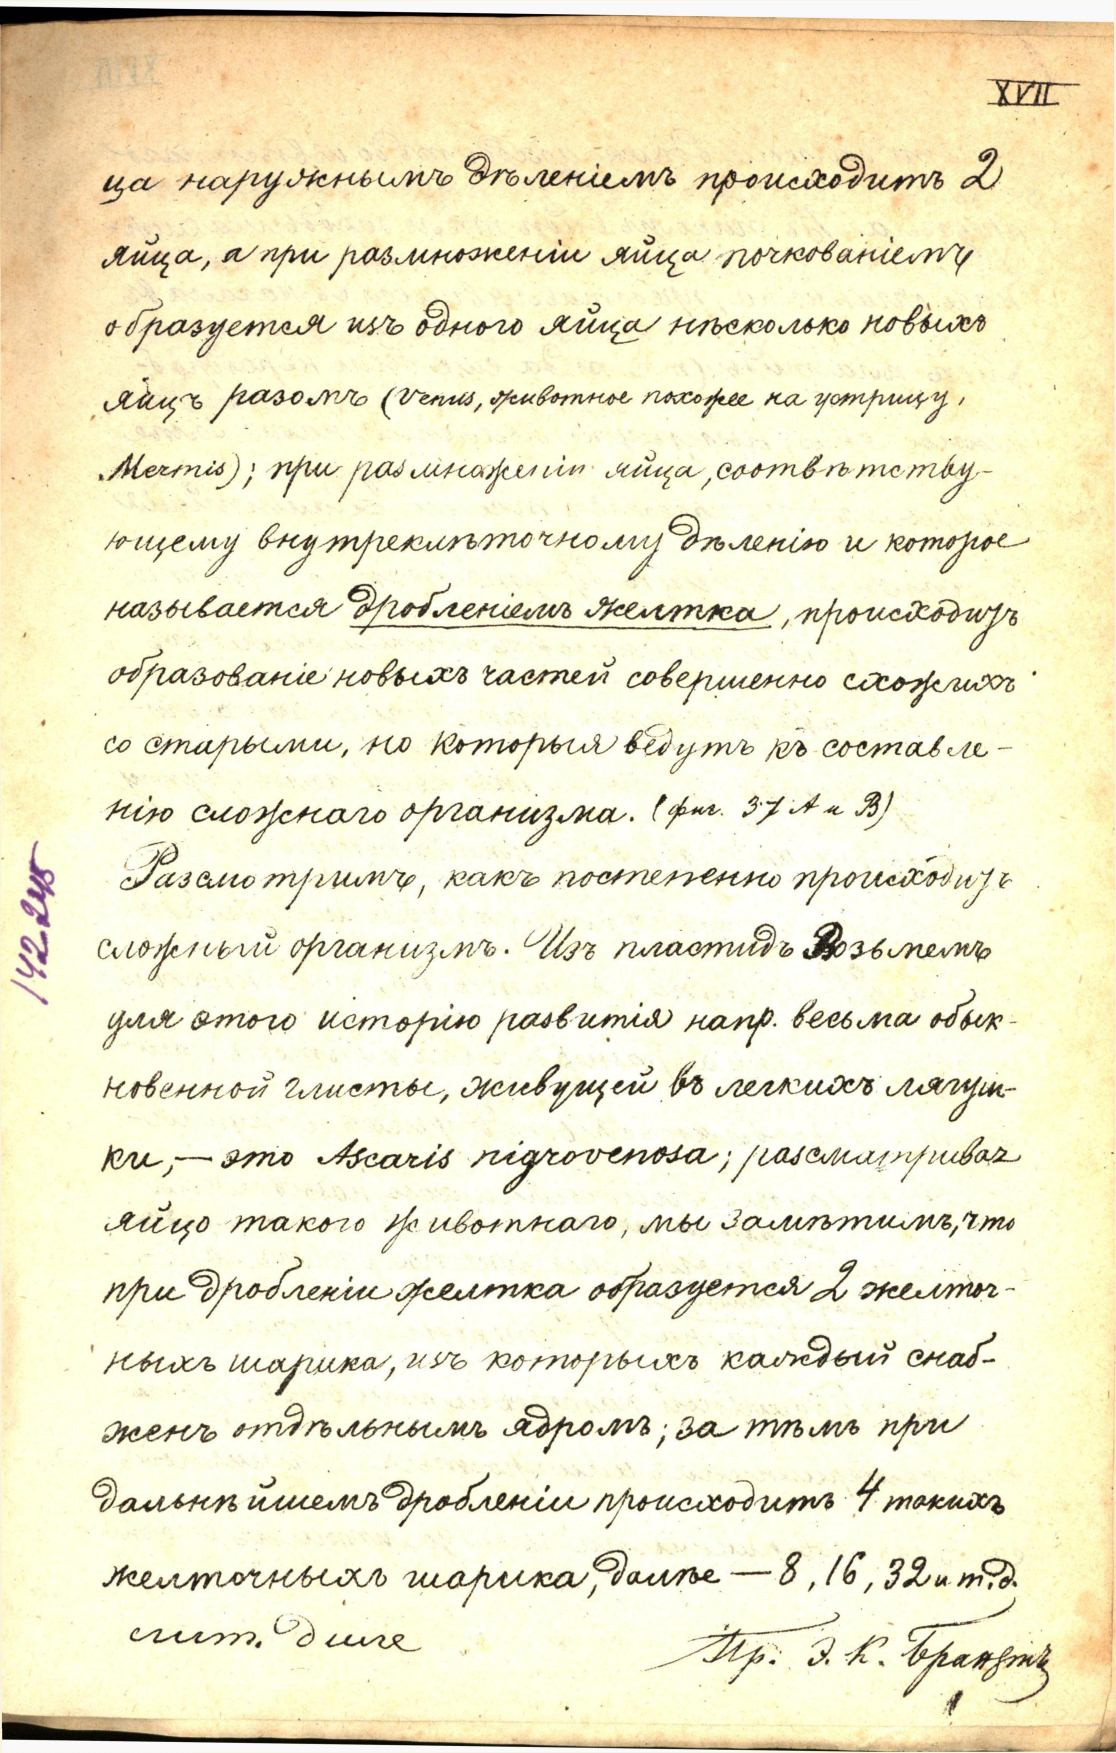 XVII
ца наружнымъ дѣленіемъ происходитъ 2
яйца, а при размноженіи яйца почкованіемъ
образуется изъ одного яйца нѣсколько новыхъ
яицъ разомъ (Venus, животное похожее на устрицу,
Mermis); при размнаженіи яйца, соотвѣтству-
ющему внутреклѣточному дѣленію и которое
называется дробленіемъ желтка, происходитъ
образованіе новыхъ частей совершенно схожихъ
со старыми, но которыя ведутъ къ составле-
нію сложнаго организма. (фиг. 37 А и В)
Разсмотримъ, какъ постепенно происходитъ
сложный организмъ. Изъ пластидъ Возьмемъ
для этого исторію развитія напр. весьма обык-
новенной глисты, живущей въ легкихъ лягуш-
ки, — это Ascaris nigrovenosa; разсматривая
яйцо такого животнаго, мы замѣтимъ, что
при дробленіи желтка образуется 2 желточ-
ныхъ шарика, изъ которыхъ каждый снаб-
женъ отдѣльнымъ ядромъ; за тѣмъ при
дальнѣйшемъ дробленіи происходитъ 4 такихъ
желточныхъ шарика, далѣе — 8, 16, 32 и т.д.
лит. Диле
Пр. Э. К. Брандтъ
142245